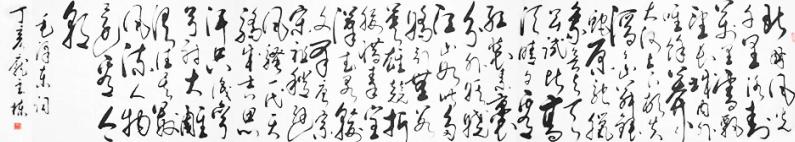 北国风光
千里冰封
万里雪飘
望长城内外
惟余莽莽
大河上下顿失
滔滔山舞银
蛇原驰蜡
象欲与天公
试比高
须晴日看
红装素裹
分外妖娆
江山如此多
娇引无数
英雄竞折
腰惜秦皇
汉武略输
文采唐宗
宋祖稍逊
风骚一代天
骄成吉思
汗只识弯
弓射大雕
俱往矣数
风流人物
还看今
朝
毛泽东词
丁亥